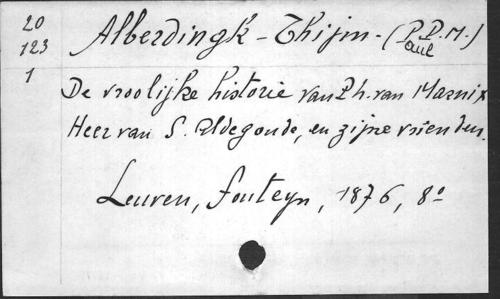 20 Alberdingk-Thijm-(P.P.M.)
123 Paul
1 De vroolijke historie van Ph. van Marnix
Heer van S. Aldegonde, en zijne vrienden.
Leuven, Fonteyn, 1876, 8º